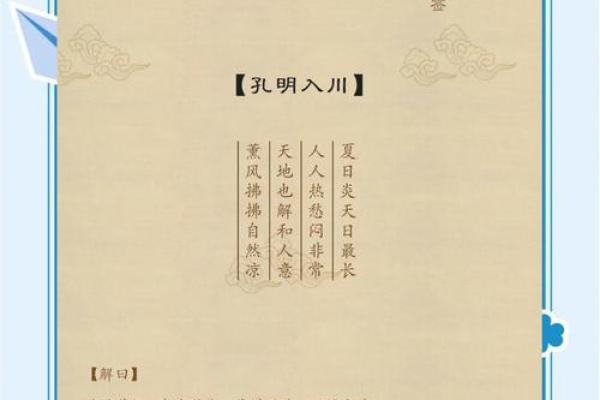 签
【孔明入川】
夏日炎天日最长
人人热愁闷非常
天地也解和人意
薰风拂拂自然凉
【解曰】